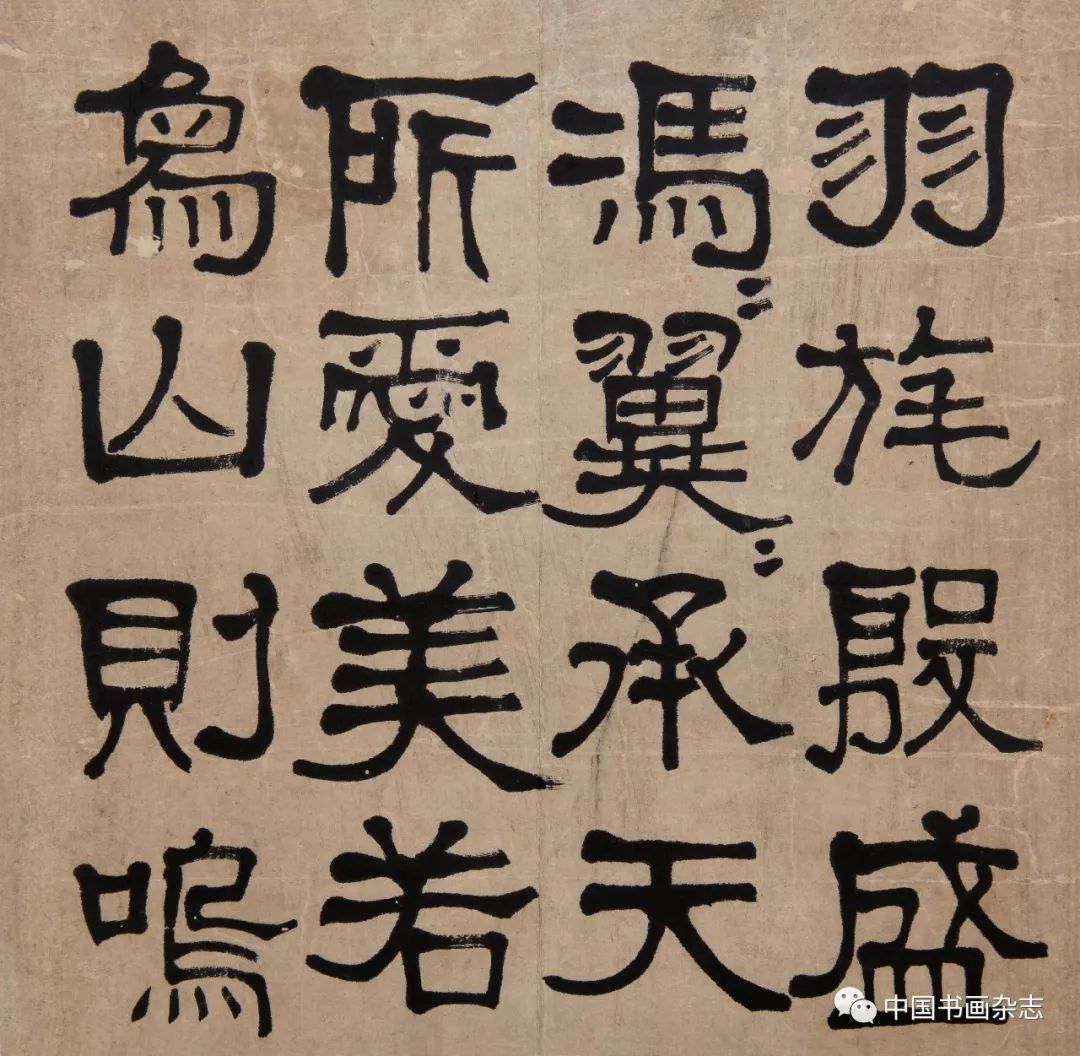 羽旄殷盛
馮〻翼〻承天
所愛美若
象山則嗚
中国书画杂志